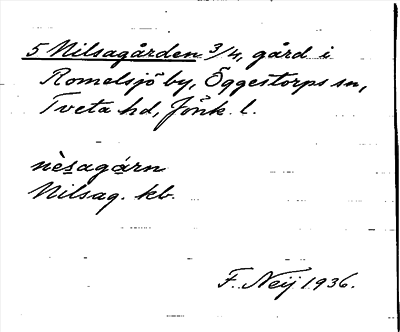 5 Nilsagården 3/4, gård i
Romelsjö by, Öggestorps sn,
Tveta hd, Jönk. l.
nèsagárn
Nilsag. kb.
F. Neij 1936.